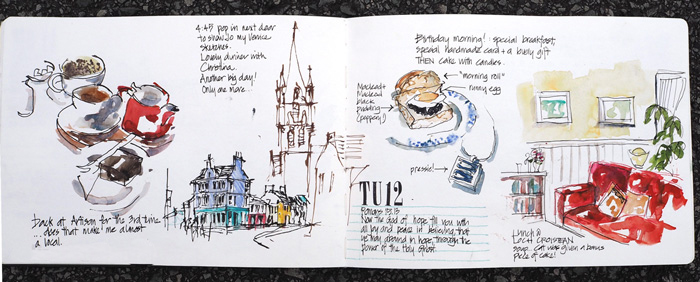 4:45 pop in next door
to show Jo my Venice
sketches.
Lovely dinner with
Christina.
Another big day!
Only one more...
back at Artisan for the 3rd time
... does that make me almost
a local.
Birthday morning! special breakfast,
special handmade card + a lovely gift
THEN cake with candles.
"morning roll"
runny egg
Macleod +
Macleod
black
pudding
(peppery!)
pressie!
TU12
Romans 15:13
Now the God of hope fill you with
all joy and peace in believing, that
ye may abound in hope, through the
power of the Holy Ghost.
Lunch @
LOCH CROISTEAN
soup... Cat was given a bonus
piece of cake!